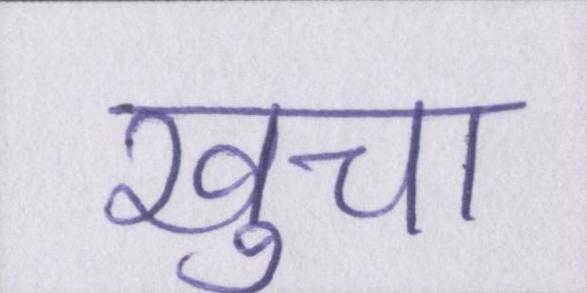 खुचा